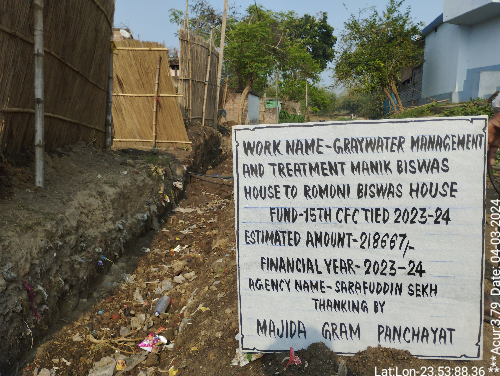 WORK NAME-GRAYWATER MANAGEMENT
AND TREATMENT MANIK BISWAS
HOUSE TO ROMONI BISWAS HOUSE
FUND-15TH CFC TIED 2023-24
ESTIMATED AMOUNT-218667/-
FINANCIAL YEAR-2023-24
AGENCY NAME-SARAFUDDIN SEKH
THANKING BY
MAJIDA GRAM PANCHAYAT
LatLon.23.53:88.36
***Acur:3.79 Date: 04-03-2024